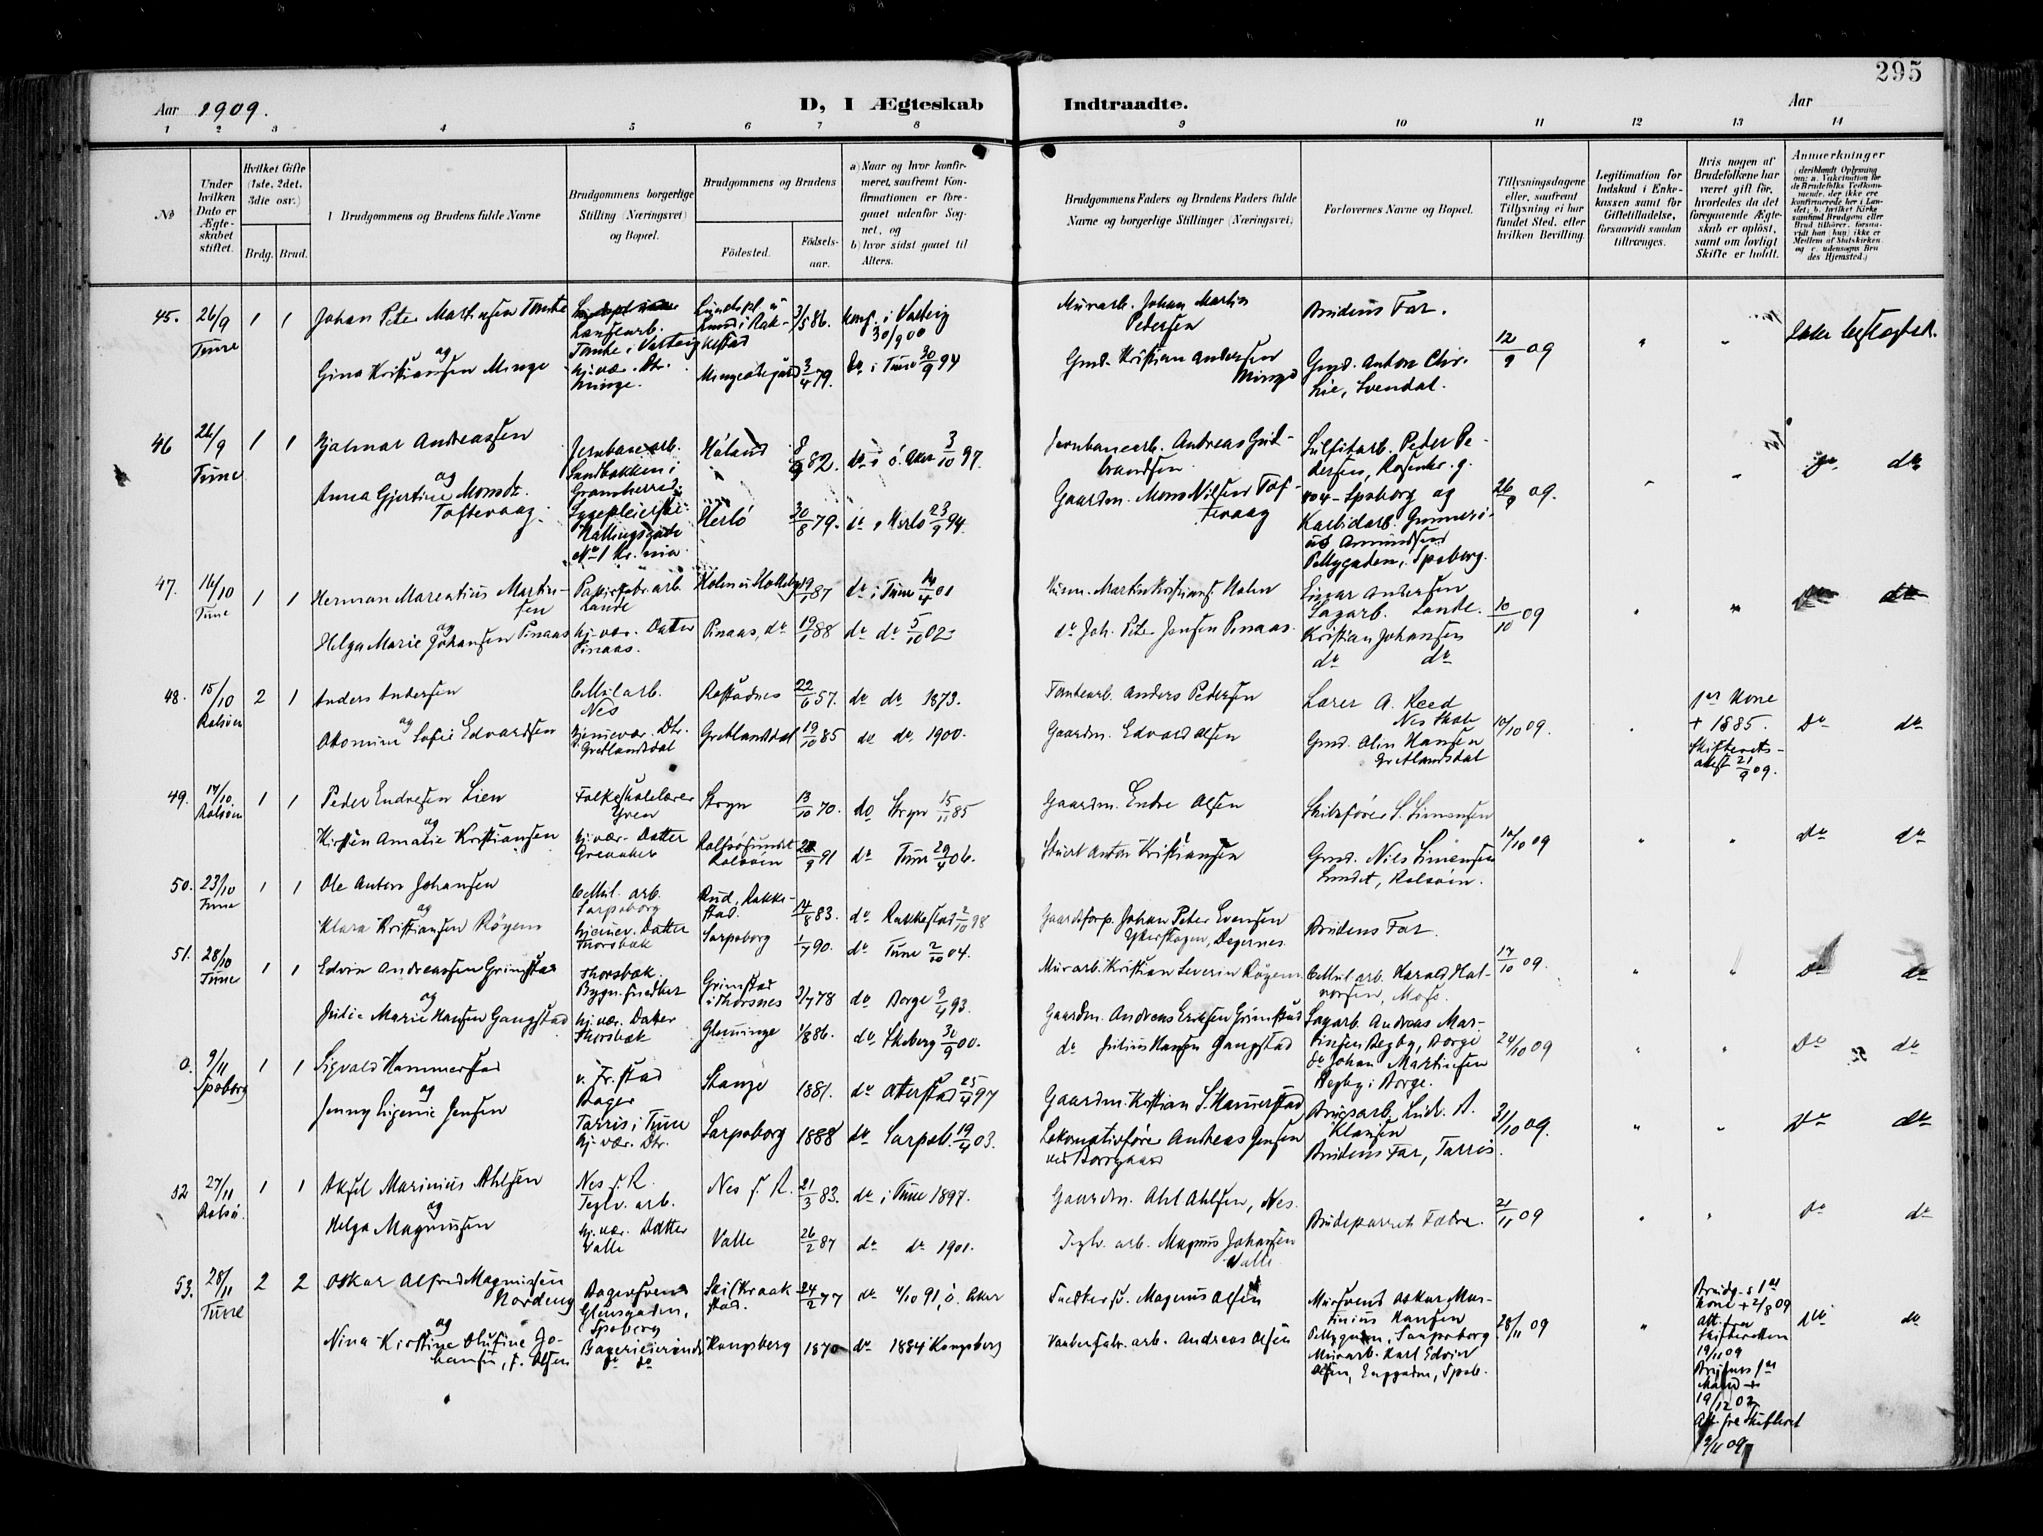 295
Aar 1909. D, I Ægteskab Indtraadte. Aar
1 2 3 4 5 6 7 8 9 10 11 12 13 14
№
Under hvilken Dato er Ægteskabet stiftet.
Hvilket Gifte (1ste, 2det, 3die osv.)
Brdg. Brud.
Brudgommens og Brudens fulde Navne
Brudgommens borgerlige Stilling (Næringsvei) og Bopæl.
Brudgommens og Brudens
Fødested.
Fødselsaar.
a) Naar og hvor konfirmeret, saafremt Konfirmationen er foregaaet udenfor Sognet, og
b) hvor sidst gaaet til Alters.
Brudgommens Faders og Brudens Faders fulde Navne og borgerlige Stillinger (Næringsvei)
Forlovernes Navne og Bopæl.
Tillysningsdagene eller, saafremt Tillysning ei har fundet Sted, efter hvilken Bevilling.
Legitimation for Indskud i Enkekassen samt for Giftetilladelse, forsaavidt saadan tiltrænges.
Hvis nogen af Brudefolkene har været gift før, hvorledes da det foregaaende Ægteskab er opløst, samt om lovligt Skifte er holdt.
Anmærkninger
45. 26/9 Tune 1 1
Johan Peter Martinsen Tombe
og
Gina Kristiansen Minge
Tombe i Varteig
hj. vær. Dtr.
Minge.
3/5 86.
3/4 79.
Konf. i Varteig
30/9 00
Do i Tune 30/9 94
Murarb. Johan Martin
Pedersen
Gmd. Kristian Andersen
Minge
Brudens Far.
Gmd. Anton Chr.
Lie, Svendal.
12/9 09
46 26/9 Tune 1 1
Hjalmar Andreassen
og
Anna Gjertine Monsdt.
Toftevaag.
Jernbanearb.
Sandbakken i
Høland
8/9 82.
do i Ø. Aker 3/10 97.
Herlø
30/8 79.
do i Herlø 23/9 94.
Jernbanearb. Andreas Guldbrandsen
Gaardm. Mons Nilsen Tofтevaag
Sulfitarb. Peder Pedersen,
26/9 09.
do do
47. 16/10 Tune 1 1
Herman Marentius Martinsen
og
Helga Marie Johansen Pinaas
Papirfabr. arb.
Lande
hj. vær. Datter
Pinaas.
Pinaas, do
19/1 88
do i Tune 14/4 01
do do 5/10 02
do Joh. Peter Jensen Pinaas.
Einar Andersen
Sagarb. Lande.
Kristian Johansen
do do
10/10 09
48. 15/10 Rolsøen 2 1
Anders Andersen
og
Sofie Edvardsen
Cellul arb.
Nes
Hjemmevær. Dtr.
Gretlandsdal
Rostadnes
Gretlandsdal
22/6 57.
19/10 85
do do 1873.
do do 1900.
Tomtearb. Anders Pedersen
Gaardm. Edvard Olsen
Lærer A. Reed
Nes Skole
Gmd. Olin Hansen
Gretlandsdal
10/10 09.
1ste Kone
+ 1885.
Skifteretsattest 21/9 09.
do do
49. 17/10 Rolsøen 1 1
Peder Endresen Lien
og
Kirsten Amalie Kristiansen
Folkeskolelærer
Gren
hj. vær. Datter
Greaaker
Stryn
Rolfsøsundet
Rolsøen
13/10 70.
28/9 91
do Stryn 15/11 85
do Tune 29/4 06.
Gaardm. Endre Olsen
Stuert Anton Kristiansen
Skibsfører S. Simensen
Gmd. Nils Simensen
Sundet, Rolsøen.
10/10 09
do do
50. 23/10 Tune 1 1
Ole Anton Johansen
og
Klara Kristiansen Røyem
Cellul. arb.
Sarpsborg
hjemmev. Datter
Thorsbæk
Rud, Rakkestad.
Sarpsborg
14/8 83.
1/7 90.
do Rakkestad 2/10 98
do Tune 2/10 04.
Gaardsforp. Johan Peter Evensen
Degernes
Murarb. Kristian Severin Røyem
Brudens Far.
Cellul arb. Harald Halvorsen, Moss.
17/10 09.
do do
51. 28/10 Tune 1 1
Edvin Andreassen Grimstad
og
Julie Marie Hansen Gangstad
Thorsbæk.
Bygn. snedker
hj. vær. Datter
Thorsbæk
Grimstad
i Thorsnes
Glemminge
3/7 78
1/8 86.
do Borge 9/4 93.
do Skeberg 30/9 00.
Gaardm. Andreas Eriksen Grimstad
do Julius Hansen Gangstad
Sagarb. Andreas Martinsen Begby, Borge
do Johan Martinsen
Begby i Borge.
24/10 09
do do
0. 9/11 Spsborg 1 1
Sigvald Hammerstad
og
Jenny Eugenie Jensen
v. Fr.stad
Bager
Tarris i Tune
hj. vær. Dtr.
Stange
Sarpsborg
1881.
1888
do Otterstad 25/4 97
do Sarpsb. 19/4 03.
Gaardm. Kristian S. Hammerstad
Lokomotivfører Andreas Jensen
ved Borgaard
Brugsarb. Ludv. A.
Klausen
Brudens Far, Tarris.
31/10 09.
do do
52 27/11 Rolsø. 1 1
Aksel Marinius Ahlsen
og
Helga Magnussen
Nes i R.
Teglv. arb.
hj. vær. Datter
Valle
Nes i R.
Valle
21/3 83.
26/2 87
do i Tune 1897.
do do 1901.
Gaardm. Ahl Ahlsen, Nes.
Teglv. arb. Magnus Johansen
Valle
Brudeparrets Fædre.
21/11 09
do do
53. 28/11 Tune 2 2
Oskar Alfred Magnussen
Nordeng
og
Nina Kirstine Olufine Johansen, f. Olsen
Bagersvend
Glengaden,
Spsborg
Bagerieierinde
do do
Ski Kraakstad.
Kongsberg
24/2 77
1870
do 4/10 91, Ø. Aker
do 1884 Kongsberg
Snedkersv. Magnus Olsen
Vaabenfabr. arb. Andreas Olsen
Mursvend Oskar Marinius Hansen
Pellygaden, Sarpsborg
Murarb. Karl Edvin
Olsen, Enggaden, Spsb.
28/11 09
Brudg.s 1ste
Kone + 2/8 09
Att. fra
Skifteretten
19/11 09
Brudens 1ste
Mand +
19/12 02
Att. fra Skifteret
2/11 09
do do